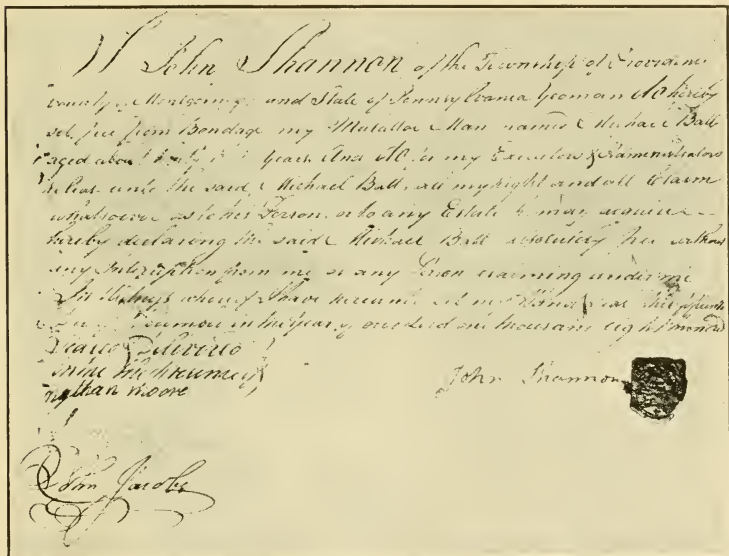 I John Shannon of the Township of Providence
county of Montgomery and State of Pennsylvania Yeoman do hereby
set free from Bondage my Mulatto Man named Michael Ball
aged about years And do for my Executors & Administrators
release unto the said Michael Ball, all my right and all Claim
whatsoever as to his Person, or to any Estate he may acquire
hereby declaring the said Michael Ball absolutely free without
any Interuption from me or any Person claiming under me
In Witness whereof I have hereunto set my Hand & Seal this
in the year of our Lord one thousand eight hundred
Sealed & Delivered
in the
Nathan Moore
John Shannon
John Jacobs